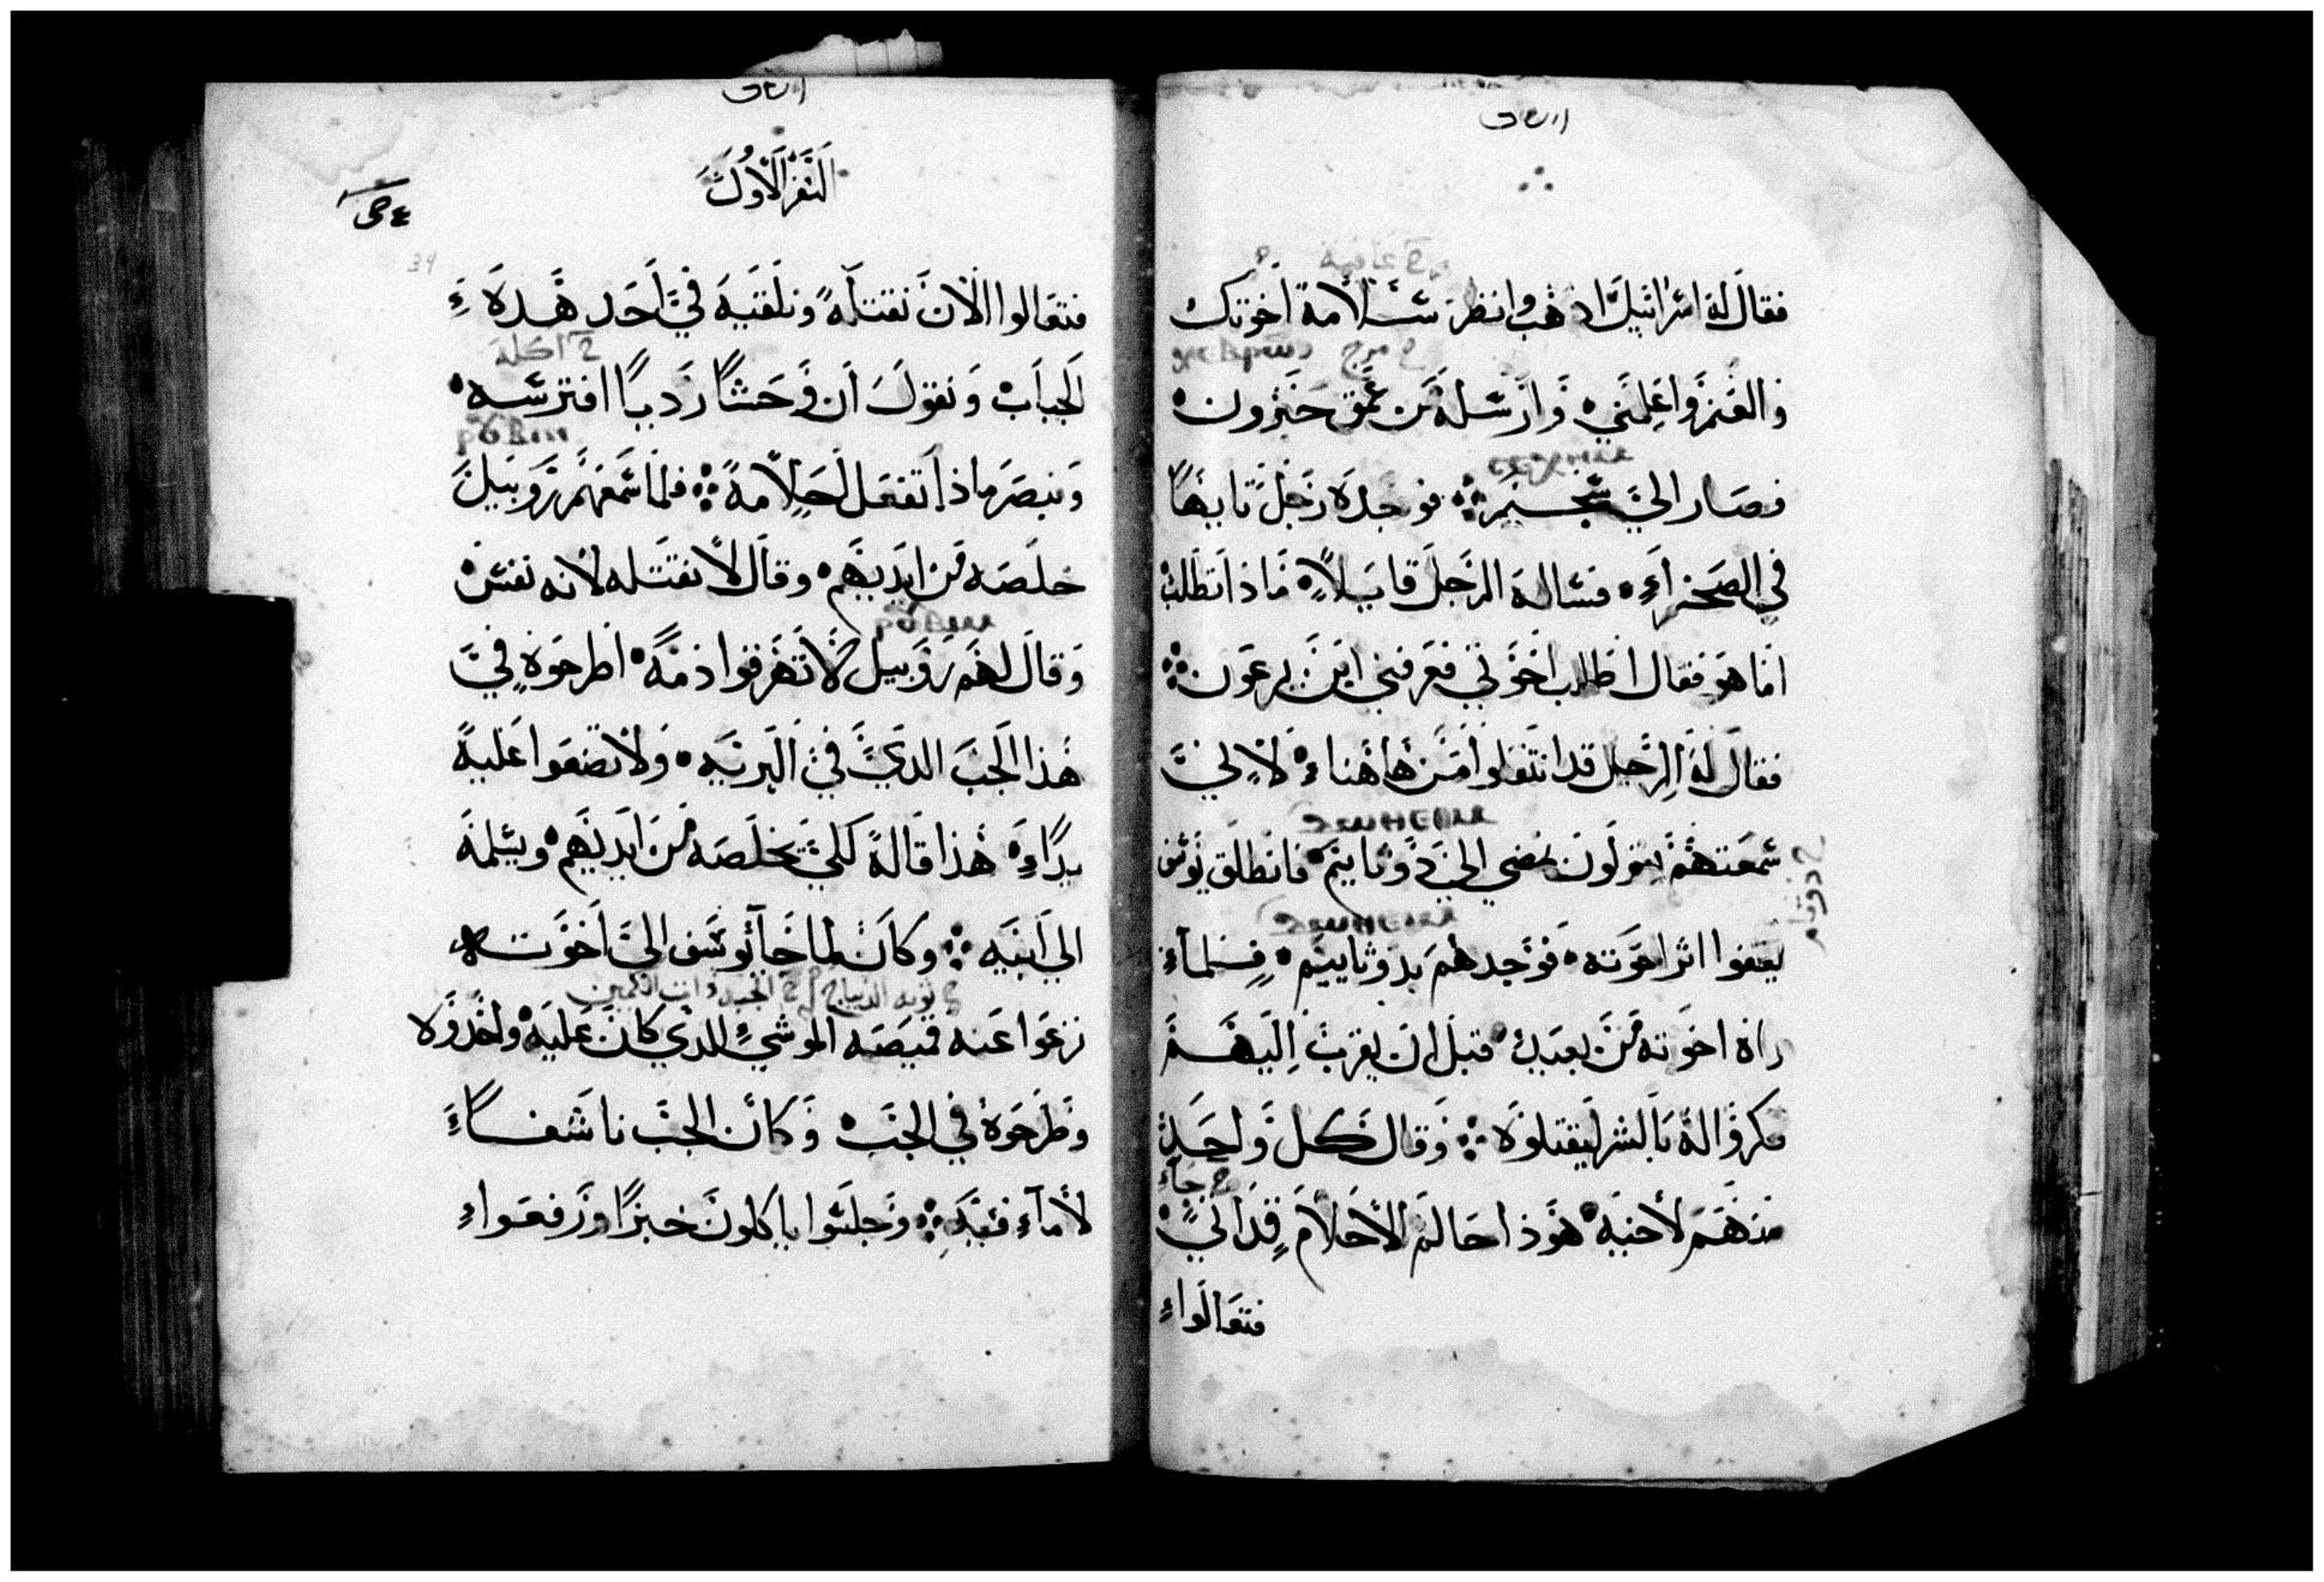 فقال له اسرائيل اذهب وانظر سلامة اخوتك
والغنم واعلمني وارسله من عمق حبرون
فصار الي شخيم فوجده رجل تايها
في الصحراء فساله الرجل قايلا ماذا تطلب
اما هو فقال اطلب اخوتي فعرفني اين يرعون
فقال له الرجل قد انتقلوا من هاهنا لاني
سمعتهم يقولون نمضي الي دوثاييم فانطلق يوسف
يقفوا اثر اخوته فوجدهم بدوثاييم فلما
راه اخوته من بعيد قبل ان يقرب اليهم
مكروا له بالشر ليقتلوه وقال كل واحد
منهم لاخيه هوذا حالم الاحلام قد اتي
فتعالوا
السفر الاول
34
فتعالوا الان نقتله ونلقيه في احد هذه
الجباب ونقول ان وحشا رديا افترسه
ونبصر ماذا تفعل احلامه فلما سمعهم روبيل
خلصه من ايديهم وقال لا نقتله لانه نفس
وقال لهم روبيل لا تهرقوا دما اطرحوه في
هذا الجب الذي في البريه ولا تضعوا عليه
يدا هذا قاله لكي يخلصه من ايديهم ويسلمه
الي ابيه وكان لما جا يوسف الي اخوته
نزعوا عنه قميصه الموشي الذي كان عليه واخذوه
وطرحوه في الجب وكان الجب ناشفا
لا ماء فيه وجلسوا ياكلون خبزا ورفعوا